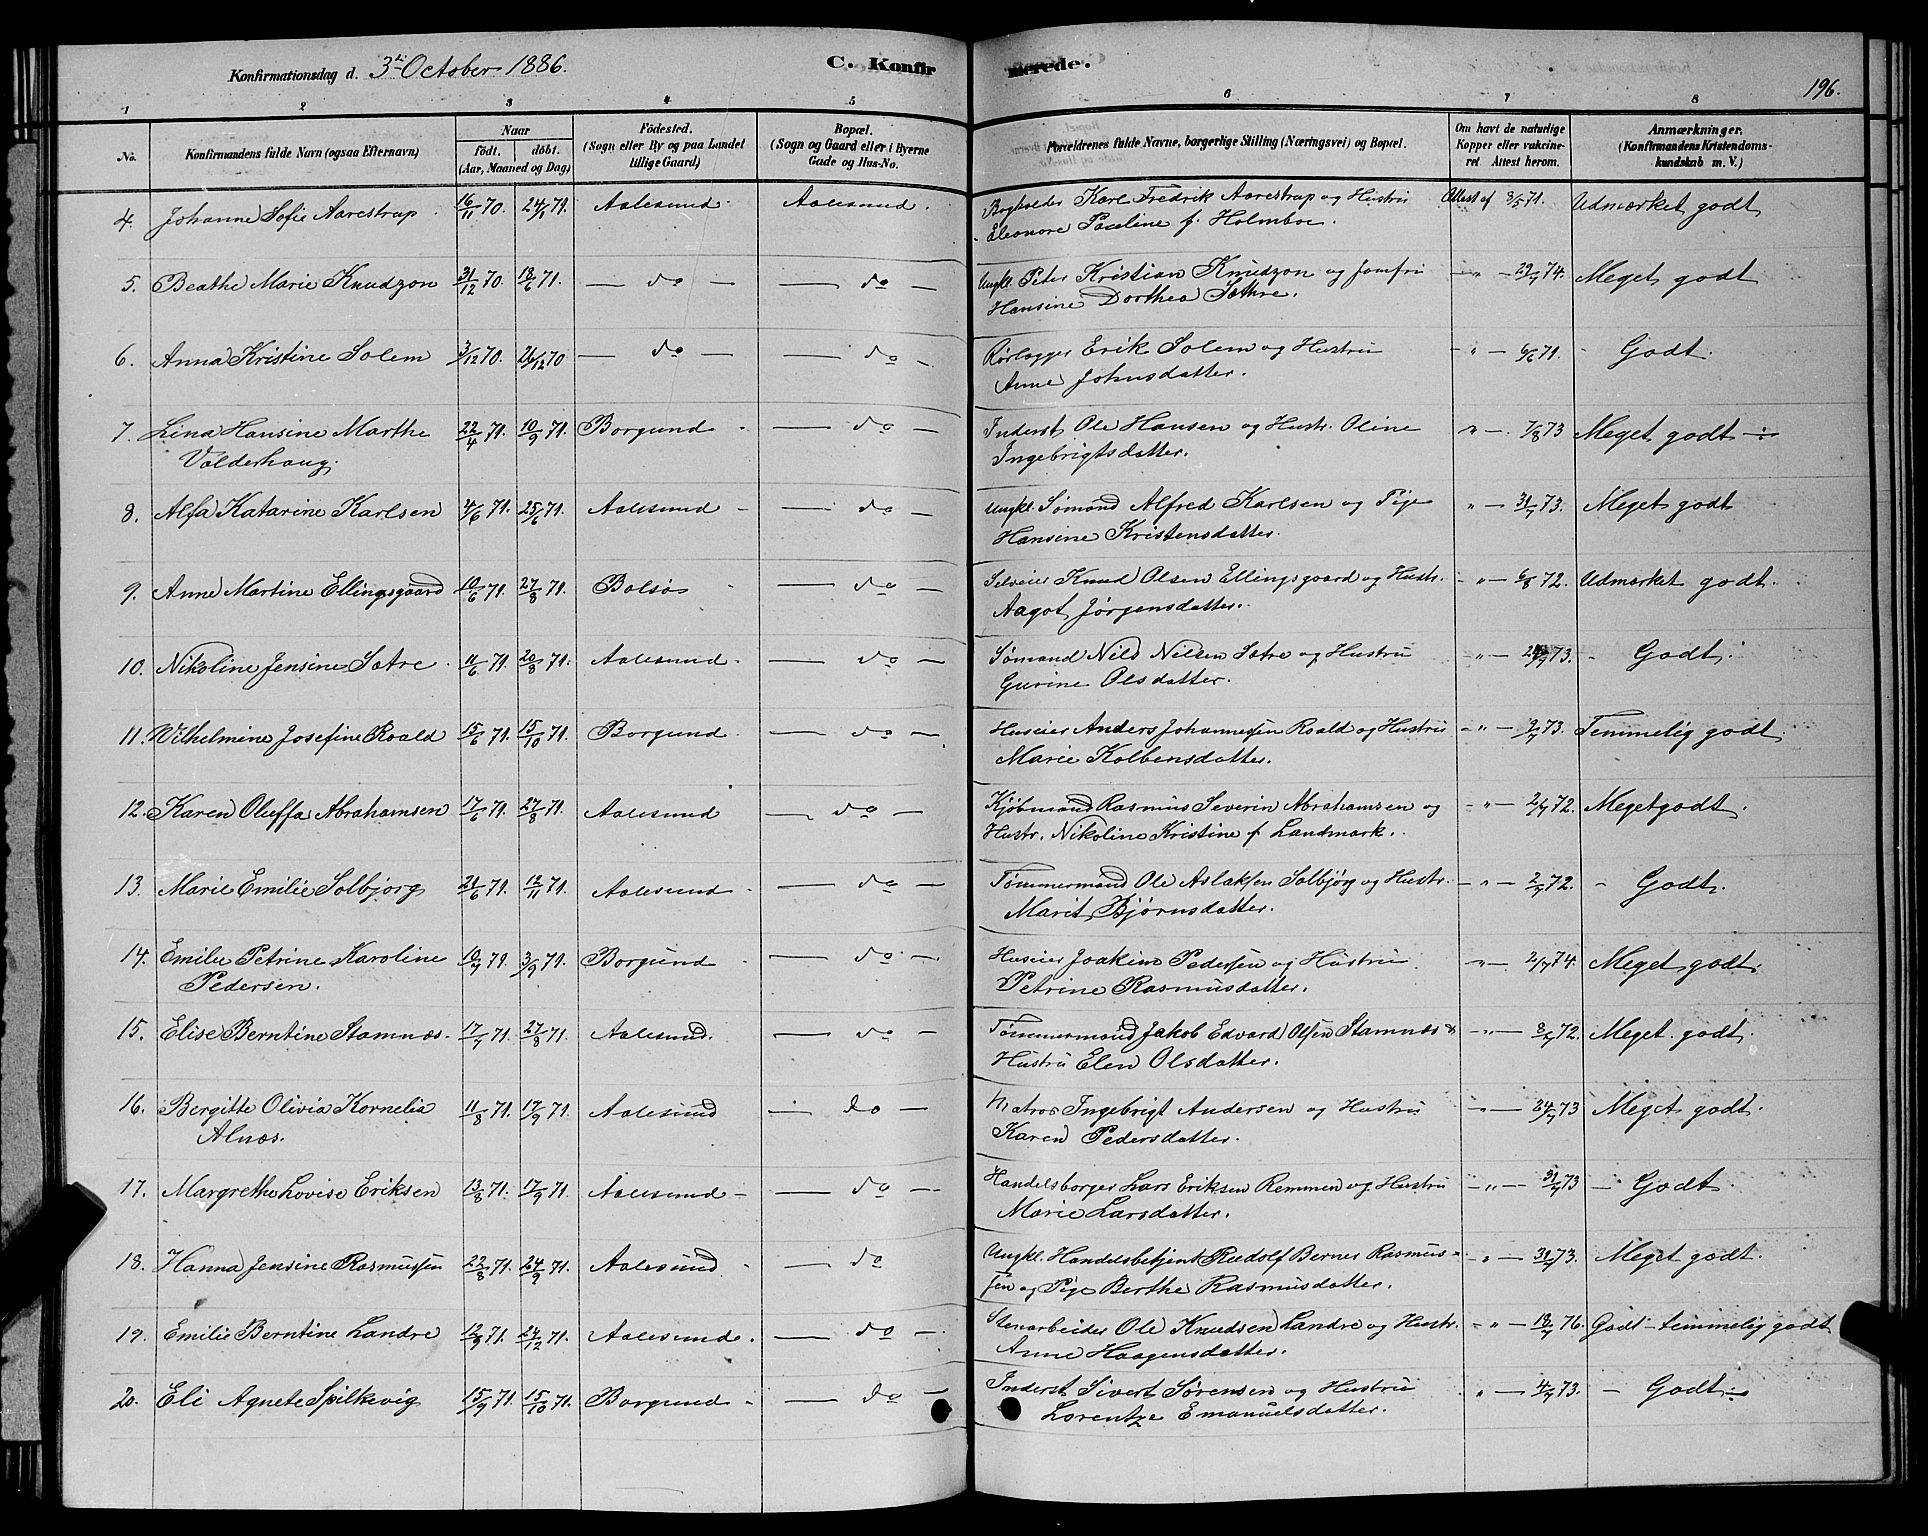 Konfirmationsdag d. 3die October 1886.
C. Konfirmerede.
196.
1 2 3 4 5 6 7 8
No. Konfirmandens fulde Navn (ogsaa Efternavn) Naar födt. döbt. (Aar, Maaned og Dag) Födested. (Sogn eller By og paa Landet tillige Gaard) Bopæl. (Sogn og Gaard eller i Byerne Gade og Hus-No. Forældrenes fulde Navne, borgerlige Stilling (Næringsvei) og Bopæl. Om havt de naturlige Kopper eller vakcineret. Attest herom. Anmærkninger. (Konfirmandens Kristendomskundskab m. V.)
4. Johanne Sofie Aarestrup. 16/11 70. 24/1 71. Aalesund. Aalesund. Karl Fredrik Aarestrup og Hustru Attest af 3/5 71. Udmærket godt
Eleonore Pauline f. Holmboe.
5. Beathe Marie Knudzon 31/12 70. 18/6 71. — do — — do — Ungkl. Peter Kristian Knudzon og Jomfru — " — 29/7 74. Meget godt
Hansine Dorthea Sæthre.
6. Anna Kristine Solem 3/12 70. 26/12 70 — do — — do — Rørlægger Erik Solem og Hustru — " — 6/6 71. - Godt.
Anne Johnsdatter.
7. Lina Hansine Marthe 22/4 71. 10/9 71. Borgund — do — Inderst Ole Hansen og Hustr. Oline " — 7/8 73 Meget godt
Valderhaug. Ingebrigtsdatter.
8. Alfa Katarine Karlsen 4/6 71. 25/6 71. Aalesund — do — Ungkl. Sømand Alfred Karlsen og Pige " — 31/7 73. Meget godt
Hansine Kristensdatter.
9. Anne Martine Ellingsgaard 10/6 71. 27/8 71. Bolsø — do — Selveier Knud Olsen Ellingsgaard og Hustr. - " — 6/8 72. Udmærket godt.
Aagot Jørgensdatter.
10. Nikoline Jensine Sætre. 11/6 71. 20/8 71. Aalesund. — do — Sømand Nils Nilsen Sætre og Hustru " — 73. - Godt.
Gurine Olsdatter.
11. Wilhelmine Josefine Roald 15/6 71. 15/10 71. Borgund. — do — Huseier Anders Johannessen Roald og Hustru - " — 2/7 73. Temmelig godt.
Marie Kolbensdatter.
12. Karen Oluffa Abrahamsen 17/6 71. 27/8 71. Aalesund — do — Kjøbmand Rasmus Severin Abrahamsen og - " — 2/7 72. Meget godt.
Hustr. Nikoline Kristine f. Landmark.
13. Marie Emilie Solbjørg 21/6 71. 12/11 71. Aalesund — do — Tømmermand Ole Aslaksen Solbjørg og Hustr. — " — 2/7 72. - Godt.
Marit Bjørnsdatter.
14. Emilie Petrine Karoline 10/7 71. 3/9 71. Borgund — do — Huseier Joakim Pedersen og Hustru " — 2/7 74. Meget godt.
Pedersen. Petrine Rasmusdatter.
15. Elise Berntine Stamnæs. 17/7 71. 27/8 71. Aalesund. — do — Tømmermand Jakob Edvard Olsen Stamnæs & - " — 8/7 72. Meget godt.
Hustru Elen Olsdatter.
16. Bergitte Olivia Kornelia 11/8 71. 17/9 71. Aalesund — do — Matros Ingebrigt Andersen og Hustru " — 24/7 73 Meget godt.
Alnæs. Karen Pedersdatter.
17. Margrethe Lovise Eriksen 13/8 71. 17/9 71. Aalesund — do — Handelsborger Lars Eriksen Remmen og Hustru - " — 31/7 73 — Godt.
Marie Larsdatter.
18. Hanna Jensine Rasmussen 22/8 71. 24/9 71. Aalesund. — do Ungkl. Handelsbetjent Rudolf Bernes Rasmus- " — 31/7 73. Meget godt.
sen og Pige Berthe Rasmusdatter.
19. Emilie Berntine Landre 12/9 71. 24/12 71. Aalesund. — do — Stenarbeider Ole Knudsen Landre og Hustr. - " — 18/7 76. Godt - temmelig godt
Anne Haagensdatter.
20. Eli Agnete Spilkevig 15/9 71. 15/10 71. Borgund. — do — Inderst Sivert Sørensen og Hustru " — 4/7 73. - Godt
Lorentze Emanuelsdatter.